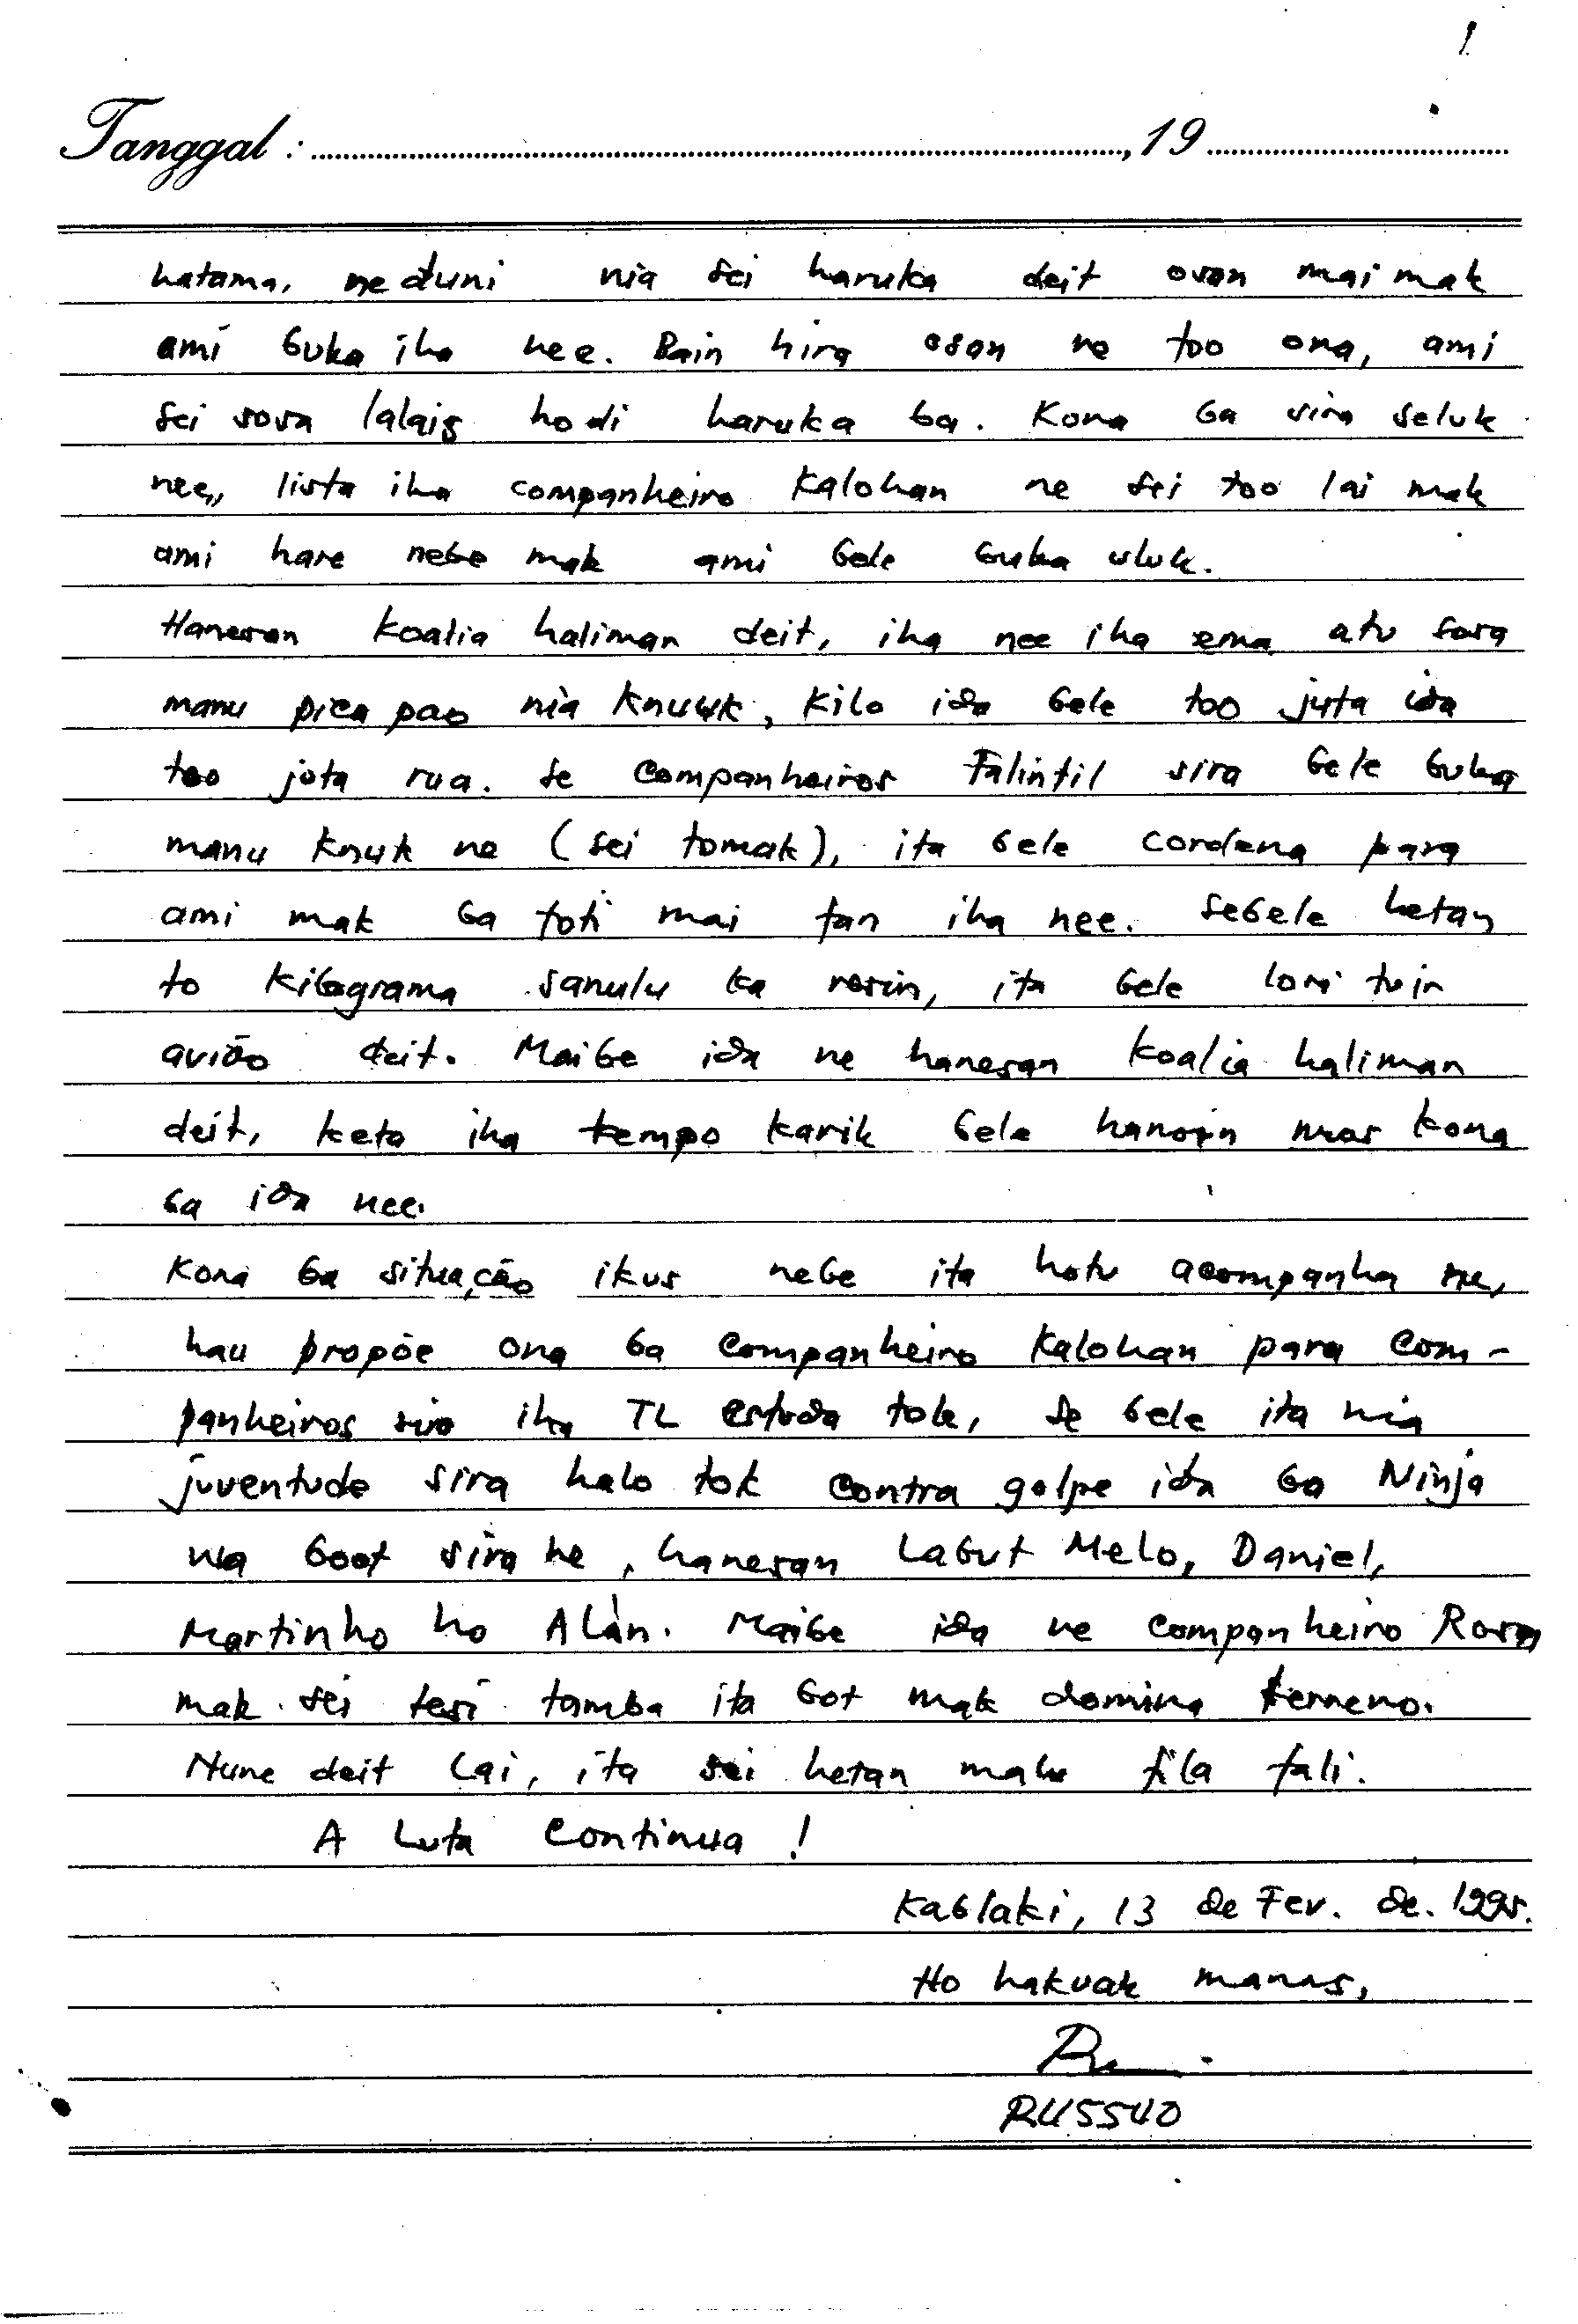 Tanggal : ..............................,19..............
hatama, ne duni nia sei haruka deit osan mai mak
ami buka iha nee. Bain hira osan ne too ona, ami
sei sosa lalais hodi haruka ba. Kona ba sira seluk
nee, lista iha companheiro Kalohan ne sei too lai mak
ami hare nebe mak ami bele buka uluk.
Hanesan koalia haliman deit, iha nee iha ema atu sosa
manu pica pao nia knuuk, kilo ida bele too juta ida
too jota rua. Se companheiros Falintil sira bele buka
manu knuk ne (sei tomak), ita bele cordena para
ami mak ba foti mai fan iha nee. Sebele hetan
to kilograma sanulu ka resin, ita bele lori tuir
avião deit. Maibe ida ne hanesan koalia haliman
deit, keta iha tempo karik bele hanoin mos kona
ba ida nee.
Kona ba situação ikus nebe ita hotu acompanha ne,
hau propõe ona ba companheiro Kalohan para com-
panheiros sira iha TL estuda tok, se bele ita nia
juventude sira halo tok contra golpe ida ba Ninja
nia boot sira ne, hanesan Labut Melo, Daniel,
Martinho ho Alàn. Maibe ida ne companheiro Rosm
mak sei tesi tamba ita bot mak domina terreno.
Nune deit lai, ita sei hetan malu fila fali.
A Luta Continua !
Kablaki, 13 de Fev. de. 1995.
Ho hakuak manas,
RUSSUO